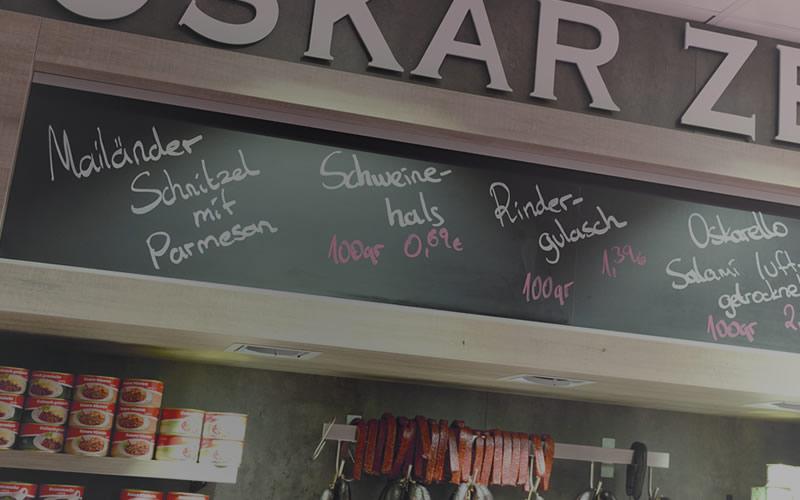 OSKAR ZE
Mailänder
Schnitzel
mit
Parmesan
Schweine-
hals
100gr 0,69€
Rinder-
gulasch
100gr 1,39€
Oskarello
Salami luft
getrockne
100gr 2,